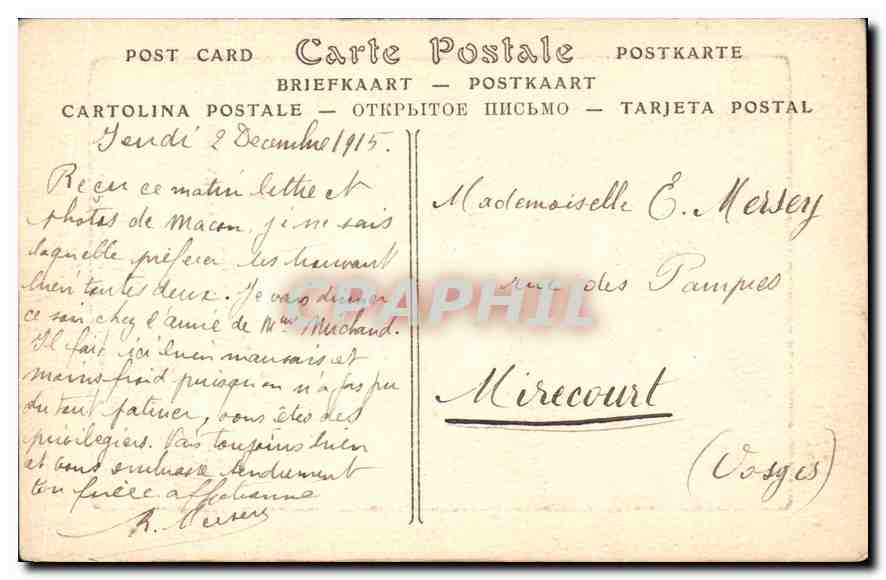 POST CARD Carte Postale POSTKARTE
BRIEFKAART — POSTKAART
CARTOLINA POSTALE — ОТКРЫТОЕ ПИСЬМО — TARJETA POSTAL
Jeudi 2 Decembre 1915.
Reçu ce matin lettre et
photos de Macon, je ne sais
laquelle préferer les trouvant
bien toutes deux. Je vais diner
ce soir chez l'amie de Mme
Il fait ici bien mauvais et
moins froid puisqu'on n'a pas pu
du tout patiner, vous êtes des
privilegiers. Vas toujours bien
et vous embrasse tendrement
ton frère affectionné
R. Mersey
Mademoiselle E. Mersey
rue des
Mirecourt
(Vosges)
CPAPHIL